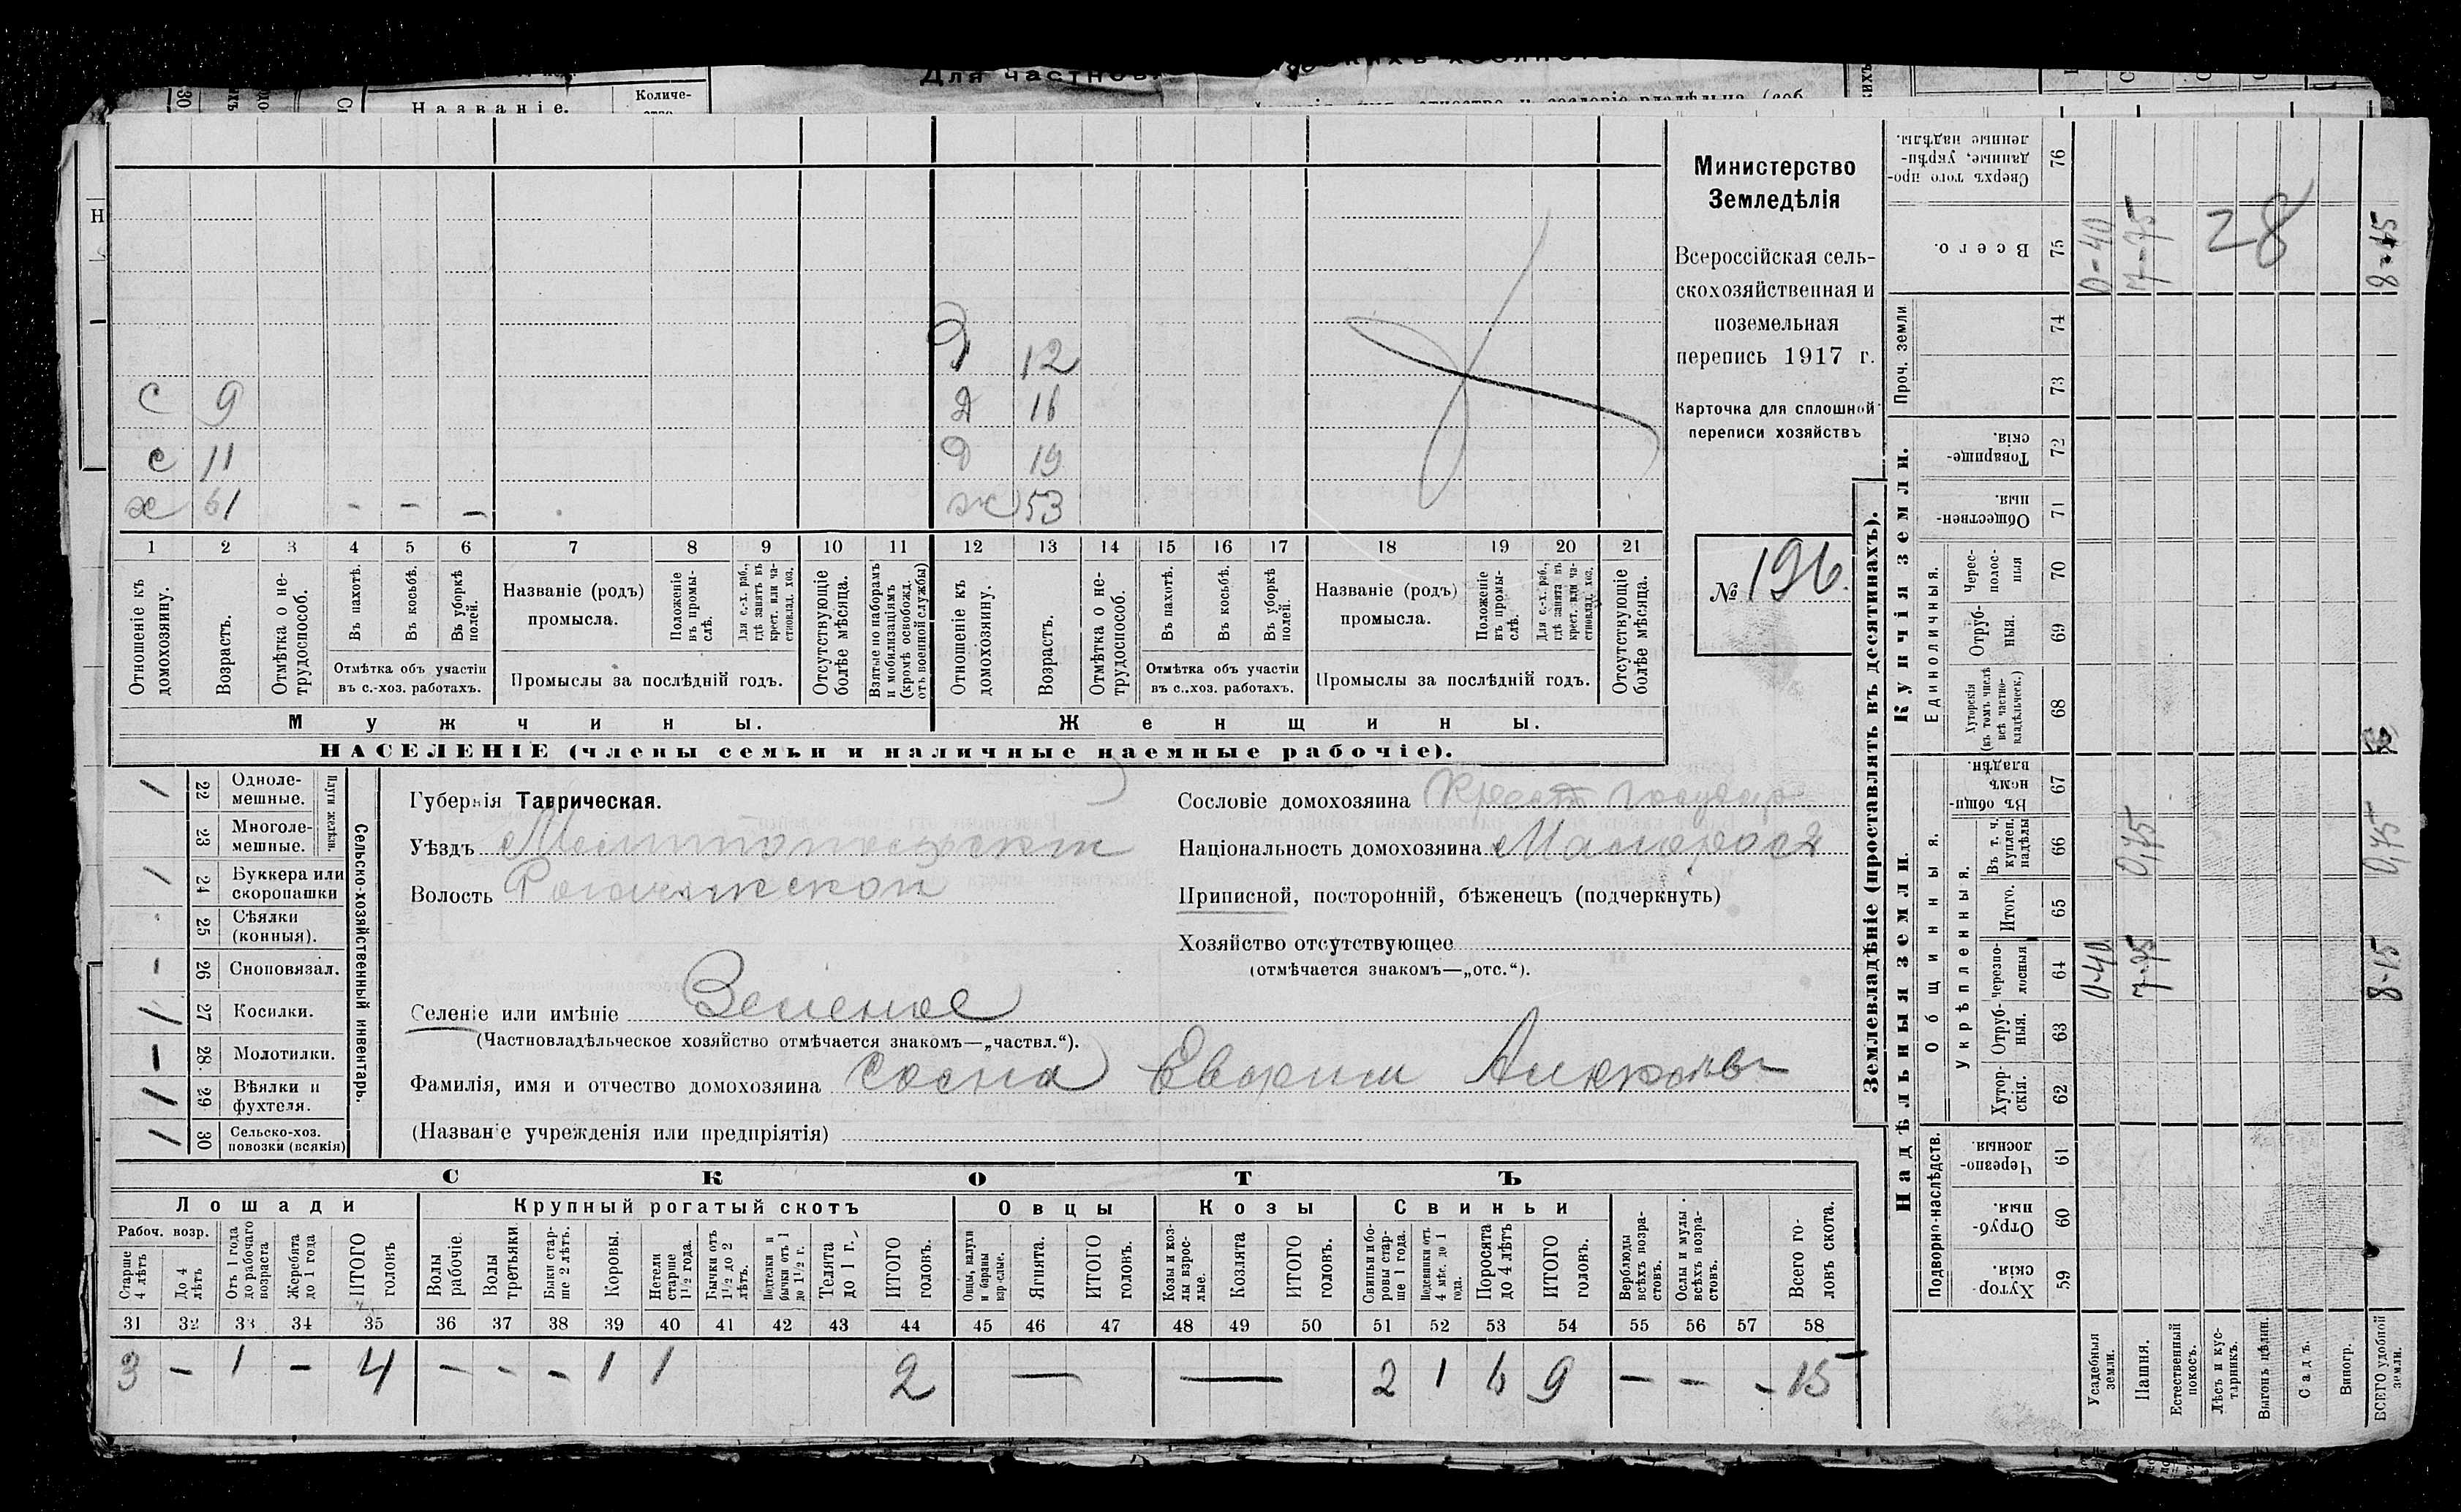 Для частнов
Названіе.
Количе-
Министерство
Земледѣлія
Всероссійская сель-
скохозяйственная и
поземельная
перепись 1917 г.
Карточка для сплошной
переписи хозяйствъ
№ 196.
Д 12
с 9 Д 16
с 11 Д 19
х 61 - - - ж 53
1 2 3 4 5 6 7 8 9 10 11 12 13 14 15 16 17 18 19 20 21
Отношеніе къ домохозяину.
Возрастъ.
Отмѣтка о не-трудоспособ.
Въ пахотѣ.
Въ косьбѣ.
Въ уборкѣ полей.
Отмѣтка объ участіи
въ с.-хоз. работахъ.
Названіе (родъ)
промысла.
Положеніе въ промы-слѣ.
Для с.-х. раб., гдѣ занятъ въ крест. или ча-стновлад. хоз.
Промыслы за послѣдній годъ.
Отсутствующіе болѣе мѣсяца.
Взятые по наборамъ и мобилизаціямъ (кромѣ освобожд. отъ военной службы)
Отношеніе къ домохозяину.
Возрастъ.
Отмѣтка о не-трудоспособ.
Въ пахотѣ.
Въ косьбѣ.
Въ уборкѣ полей.
Отмѣтка объ участіи
въ с..хоз. работахъ.
Названіе (родъ)
промысла.
Положеніе въ промы-слѣ.
Для с.-х. раб., гдѣ занята въ крест. или ча-стновлад. хоз.
Промыслы за послѣдній годъ.
Отсутствующіе болѣе мѣсяца.
Мужчины.
Женщины.
НАСЕЛЕНІЕ (члены семьи и наличные наемные рабочіе).
Сельско-хозяйственный инвентарь.
Плуги желѣзн.
/ 22 Одноле-мешные.
23 Многоле-мешные.
/ 24 Буккера или скоропашки
25 Сѣялки (конныя).
- 26 Сноповязал.
/ 27 Косилки.
- 28. Молотилки.
/ 29 Вѣялки и фухтеля.
/ 30 Сельско-хоз. повозки (всякія)
Губернія Таврическая.
Уѣздъ Мелитопольскій
Волость Рогачикской
Селеніе или имѣніе Зеленое
(Частновладѣльческое хозяйство отмѣчается знакомъ—„частвл.“).
Фамилія, имя и отчество домохозяина Сосна
(Названіе учрежденія или предпріятія)
Сословіе домохозяина Крест
Національность домохозяина Малоросъ
Приписной, посторонній, бѣженецъ (подчеркнуть)
Хозяйство отсутствующее
(отмѣчается знакомъ—„отс.“).
СКОТЪ
Лошади
Крупный рогатый скотъ
Овцы
Козы
Свиньи
Рабоч. возр.
Старше 4 лѣтъ
До 4 лѣтъ
Отъ 1 года до рабочаго возраста
Жеребята до 1 года
ИТОГО головъ
Волы рабочіе.
Волы третьяки
Быки стар-ше 2 лѣтъ.
Коровы.
Нетели старше 1½ года.
Бычки отъ 1½ до 2 лѣтъ.
Подтелки и бычки отъ 1 до 1½ г.
Телята до 1 г.
ИТОГО головъ.
Овцы, валухи и бараны взр-слые.
Ягнята.
ИТОГО головъ.
Козы и коз-лы взрос-лые.
Козлята
ИТОГО головъ.
Свиньи и бо-ровы стар-ше 1 года.
Подсвинки отъ 4 мѣс. до 1 года.
Поросята до 4 лѣтъ
ИТОГО головъ.
Верблюды всѣхъ возра-стовъ.
Ослы и мулы всѣхъ возра-стовъ.
Всего го-ловъ скота.
31 32 33 34 35 36 37 38 39 40 41 42 43 44 45 46 47 48 49 50 51 52 53 54 55 56 57 58
3 - 1 - 4 - - - 1 1 2 — — 2 1 6 9 - - - 15
Землевладѣніе (проставлять въ десятинахъ).
Надѣльныя земли.
Купчія земли.
Проч. земли
Подворно-наслѣдств.
Общинныя.
Укрѣпленныя.
Единоличныя.
Хутор-скія. 59
Отруб-ныя. 60
Черезпо-лосныя 61
Хутор-скія. 62
Отруб-ныя. 63
Черезпо-лосныя 64
Итого. 65
Въ т. ч. куплен. надѣлы 66
Въ общи-номъ владѣн. 67
Хуторскія (въ томъ числѣ всѣ частно-владѣльческ.) 68
Отруб-ныя. 69
Черес-полос-ныя 70
Обществен-ныя. 71
Товарище-скія. 72
73
74
Всего. 75
Сверхъ того про-данные, укрѣп-ленные надѣлы. 76
Усадебныя земли. 0-40 0-40
Пашня. 7-75 0,75 7-75
Естественный покосъ.
Лѣсъ и кус-тарникъ.
Выгонъ цѣлин.
Садъ.
Виногр.
ВСЕГО удобной земли. 8-15 0,75 8-15
28